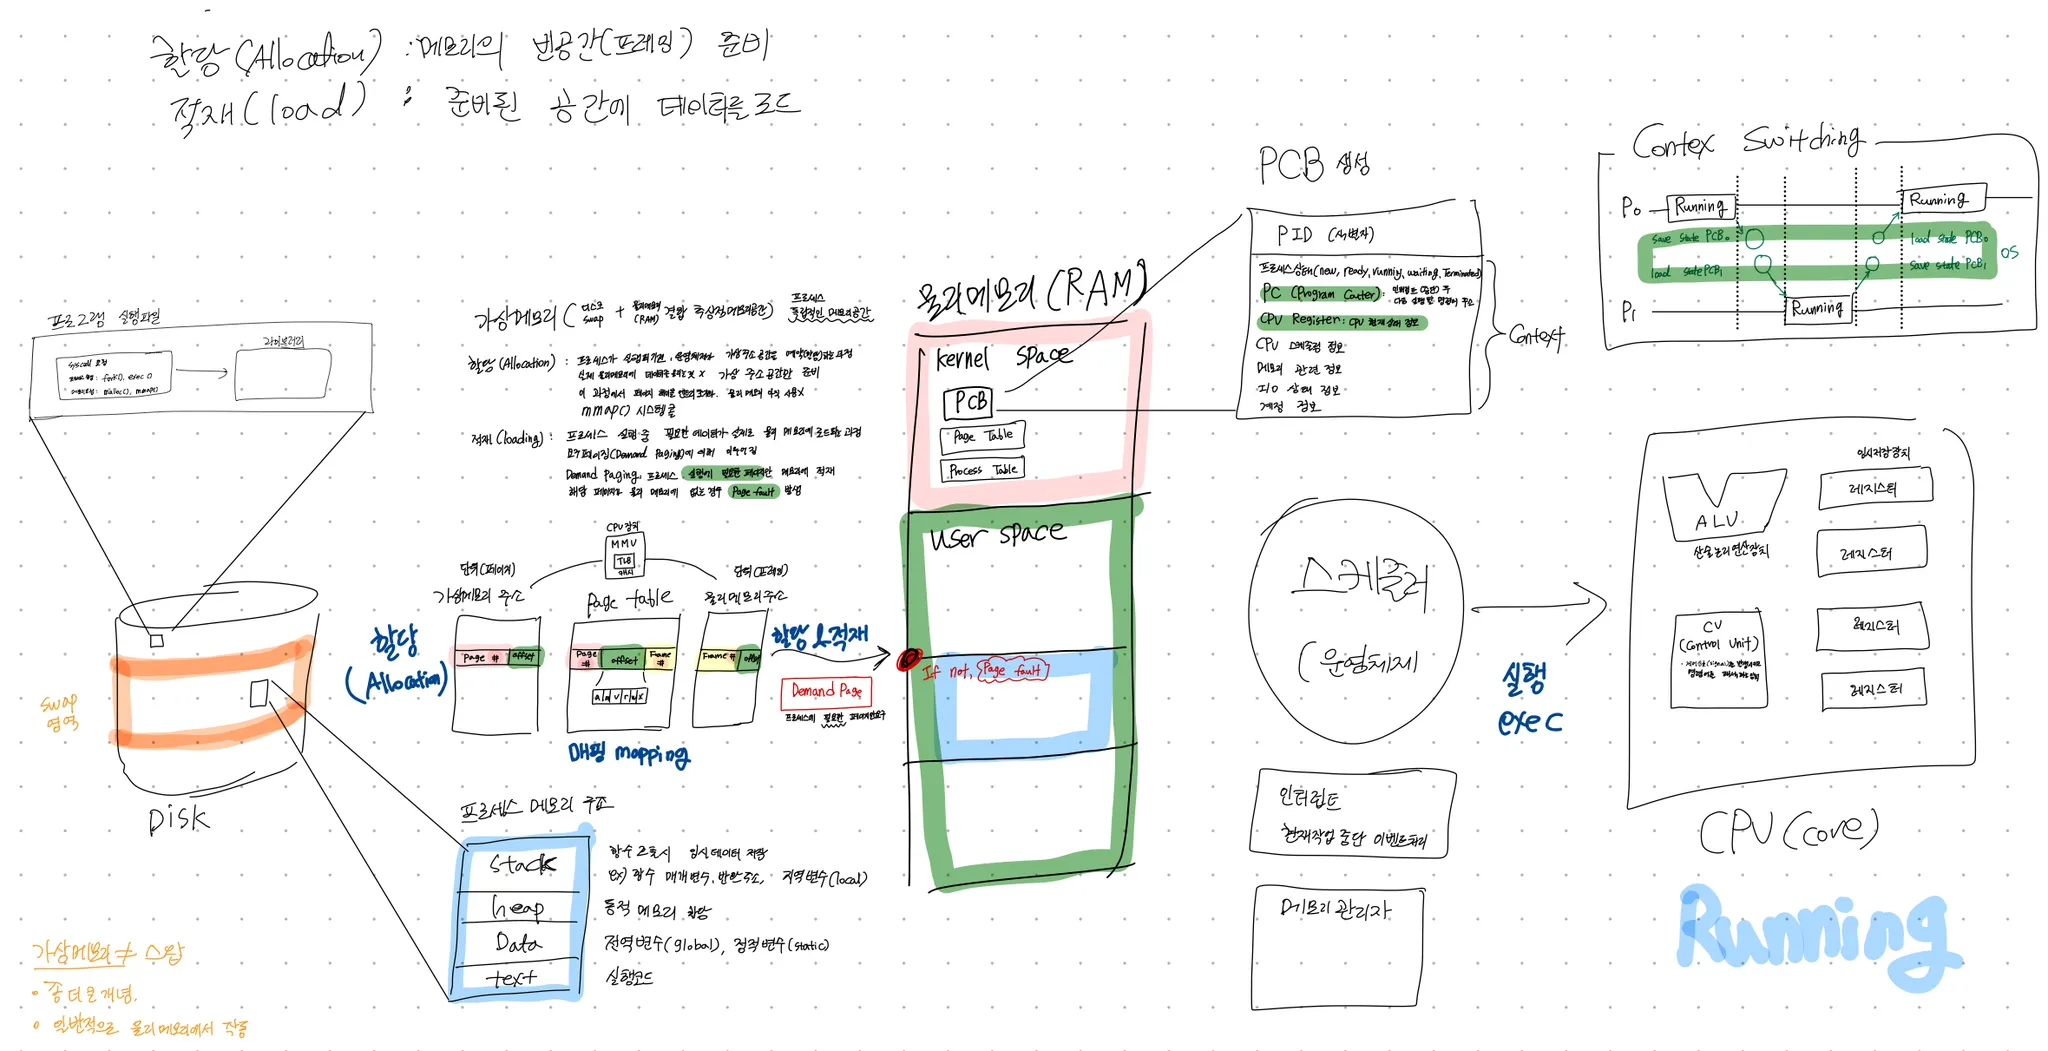 할당(Allocation) : 메모리의 빈공간(프레임) 준비
적재(load) : 준비된 공간에 데이터를 로드
프로그램 실행파일
syscall 요청
fork(), exec()
malloc(), mmap()
라이브러리
swap
영역
Disk
가상메모리 ≠ 스왑
• 좀 더 큰 개념.
• 일반적으로 물리메모리에서 작동
가상메모리 ( 디스크 swap + 물리메모리 (RAM) 결합 추상적메모리공간) 프로세스 독립적인 메모리공간
할당(Allocation) : 프로세스가 실행되기전, 운영체제가 가상주소 공간을 예약(반환)하는 과정
실제 물리메모리에 데이터를 올리는 것 X 가상 주소공간만 준비
이 과정에서 페이지 물리 메모리 아직 사용X
mmap() 시스템 콜
적재(loading) : 프로세스 실행 중 필요한 데이터가 실제로 물리 메모리에 로드되는 과정
요구페이징(Demand Paging)에 의해 이루어짐
Demand Paging, 프로세스 실행에 필요한 페이지만 메모리에 적재
해당 페이지가 물리 메모리에 없는 경우 Page fault 발생
CPU 장치
MMU
TLB
캐시
단위(페이지)
가상메모리 주소
Page #
offset
page table
Page #
offset
Frame #
a d v r w x
단위(프레임)
물리메모리 주소
Frame #
offset
할당
(Allocation)
매핑 mapping
할당 & 적재
Demand Page
프로세스에 필요한 페이지만 요구
프로세스 메모리 구조
stack
함수 호출시 임시 데이터 저장
ex) 함수 매개변수, 반환주소, 지역변수(local)
heap
동적 메모리 할당
Data
전역변수(global), 정적변수(static)
text
실행코드
물리메모리(RAM)
kernel space
PCB
Page Table
Process Table
user space
If not, Page fault
PCB 생성
PID (식별자)
프로세스상태(new, ready, running, waiting, Terminated)
PC (Program Couter) : 인터럽트 (중단) 후
다음 실행할 명령어 주소
CPU Register : CPU 현재상태 정보
CPU 스케줄링 정보
메모리 관련 정보
I/O 상태 정보
계정 정보
Context
스케줄러
(운영체제
인터럽트
현재작업 중단 이벤트처리
메모리 관리자
실행
exec
Contex Switching
P0
Running
Running
save state PCB0
load state PCB0
load state PCB1
save state PCB1
OS
P1
Running
ALU
산술논리연산장치
CU
(Control Unit)
임시저장장치
레지스터
레지스터
레지스터
레지스터
CPU(core)
Running